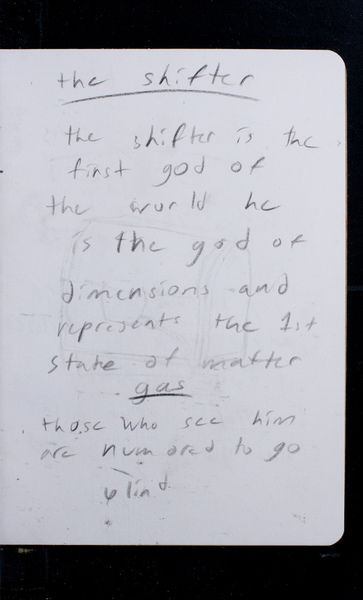 the shifter
the shifter is the
first god of
the world he
is the god of
dimensions and
represents the 1st
state of matter
gas
those who see him
are numored to go
blind